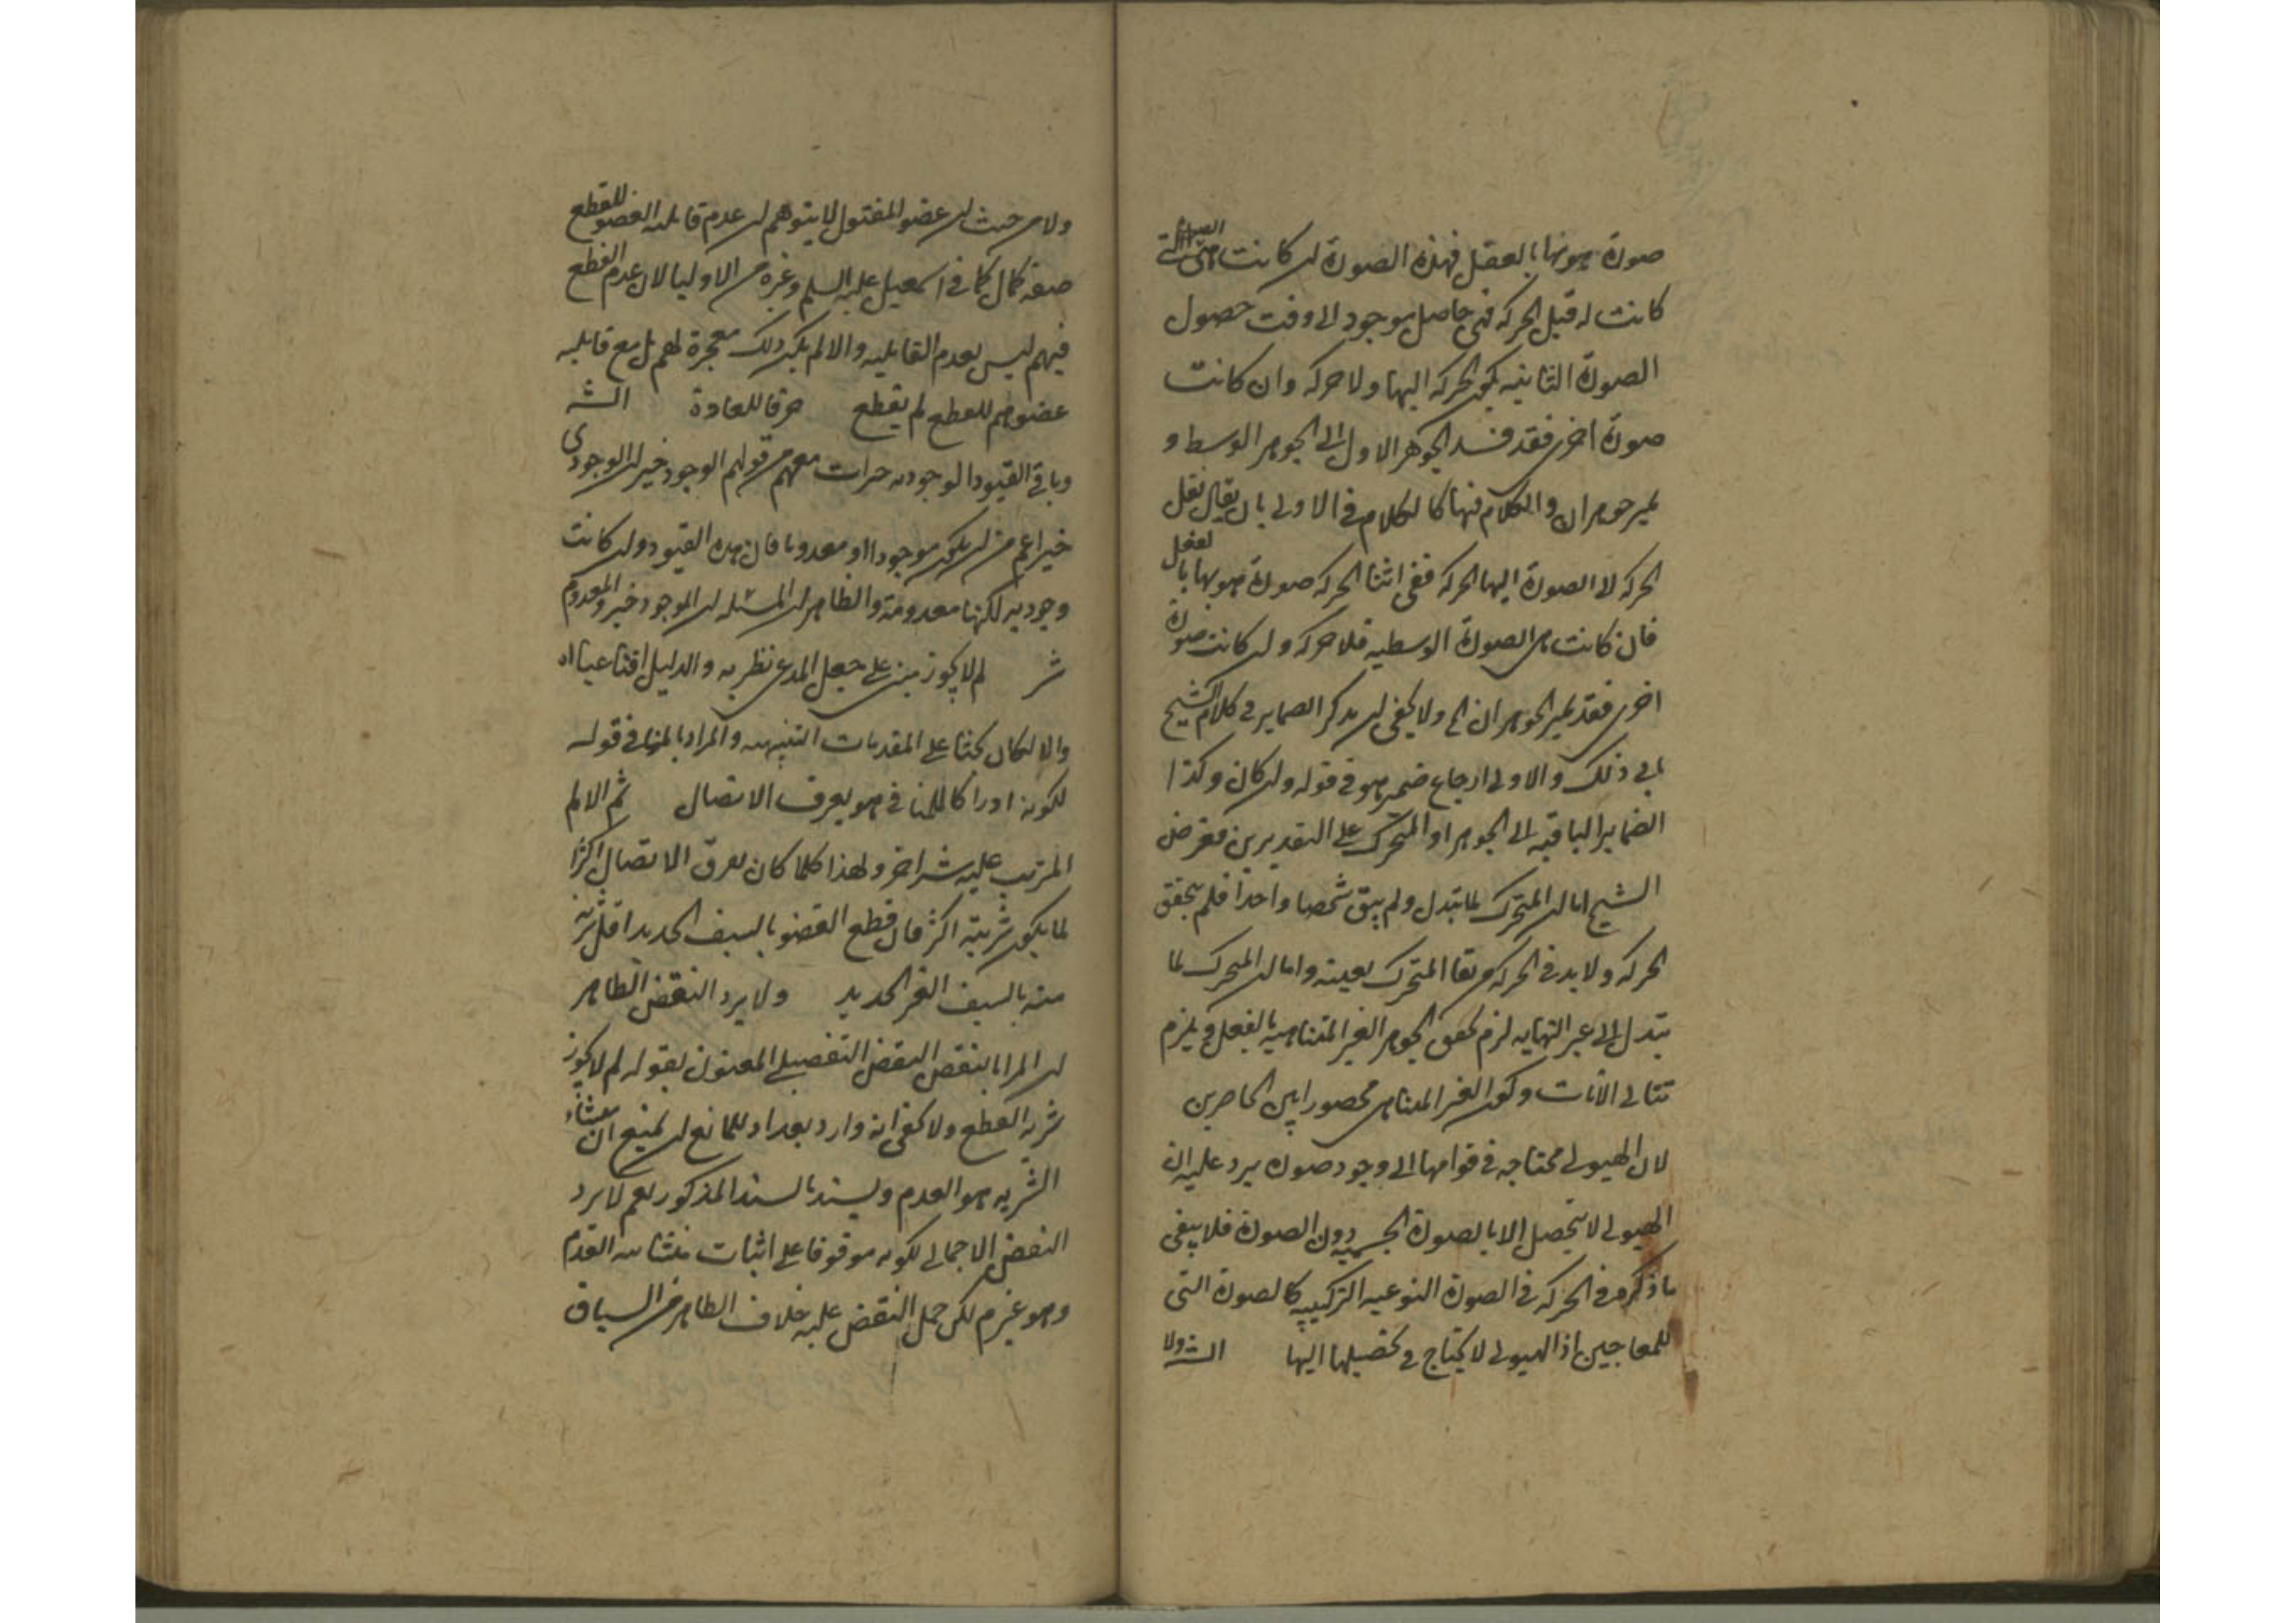 صورة هو بها بالفعل فهذه الصورة ان كانت هي الصورة التي
كانت له قبل الحركة فهي حاصل موجود الى وقت حصول
الصورة الثانية يكون الحركة اليها ولا حركة وان كانت
صورة اخرى فقد فسد الجوهر الاول الى الجوهر الوسط و
تميز جوهران والكلام فيها كالكلام في الاولى بان يقال نقل
الحركة لا الصورة اليها الحركة ففي اثناء الحركة صورة هو بها بالفعل
فان كانت هي الصورة الوسطية فلا حركة وان كانت صورة
اخرى فقد تميز الجوهران الخ ولا يخفى ان تذكر الضماير في كلام الشيخ
يابى ذلك والاولى ارجاع ضمير هو في قوله وان كان وكذا
الضماير الباقية الى الجوهر او المتحرك على التقديرين فغرض
الشيخ اما ان المتحرك لما تبدل ولم يبق شخصا واحدا فلم يتحقق
الحركة ولا بد في الحركة من بقا المتحرك بعينه واما ان المتحرك لما
يتبدل الى غير النهاية لزم تحقق الجوهر الغير المتناهية بالفعل ويلزم
تتالي الآنات وكون الغير المتناهى محصورا بين الحاصرين
لان الهيولى محتاجة في قوامها الى وجود صورة يرد عليه ان
الهيولى لا يتحصل الا بالصورة الجسمية دون الصورة فلا ينفي
ما ذكره في الحركة في الصورة النوعية التركيبية كالصورة التي
للمعاجين اذ الهيولى لا يحتاج في تحصيلها اليها الش ولا
ولا من حيث ان عضو المقتول لا يتوهم ان عدم قابلية العضو للقطع
صفة كمال كما في اسمعيل عليه السلم وغيره من الاوليا لان عدم القطع
فيهم ليس لعدم القابلية والا لم يكن ذلك معجزة لهم بل مع قابلية
عضوهم للقطع لم يقطع خرقا للعادة الش
وباقي القيود الوجودية خيرات معهم من قولهم الوجود خير ان الوجودى
خير اعم من ان يكون موجودا او معدوما فان هذه القيود وان كانت
وجودية لكنها معدومة والظاهر ان المسئلة ان الموجود خير والمعدوم
شر لم لا يجوز مبنى على جعل المدعى نظرية والدليل اقناعيا اه
والا لكان بحثا على المقدمات التنبيهية والمراد بالمنافي قوله
لكونه ادراكا للمنافي هو تفرق الاتصال ثم الالم
المترتب عليه شر اخر ولهذا كلما كان تفرق الاتصال اكثر
لما يكون شريته اكثر فان قطع العضو بالسيف الحديد اقل شرية
منه بالسيف الغير الحديد ولا يرد النقض الظاهر
ان المراد بالنقض النقض التفصيلي المعنون بقوله لم لا يجوز
شرية القطع ولا يخفى انه وارد بعد اد للمانع ان يمنع ان منشاء
الشرية هو العدم ويسند بالسند المذكور نعم لا يرد
النقض الاجمالي لكونه موقوفا على اثبات منشائية العدم
وهو غير م لكن حمل النقض عليه خلاف الظاهر من السياق